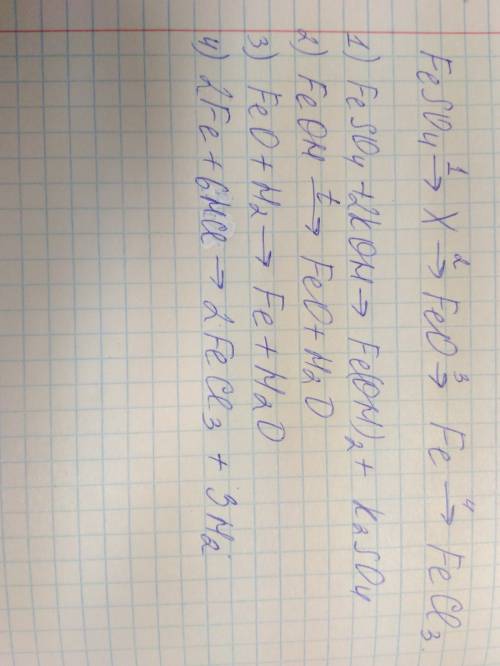 FeSO₄ →¹ X →² FeO →³ Fe →⁴ FeCl₃
1) FeSO₄ + 2KOH → Fe(OH)₂ + K₂SO₄
2) FeOH →ᵗ FeO + H₂O
3) FeO + H₂ → Fe + H₂O
4) 2Fe + 6HCl → 2FeCl₃ + 3H₂